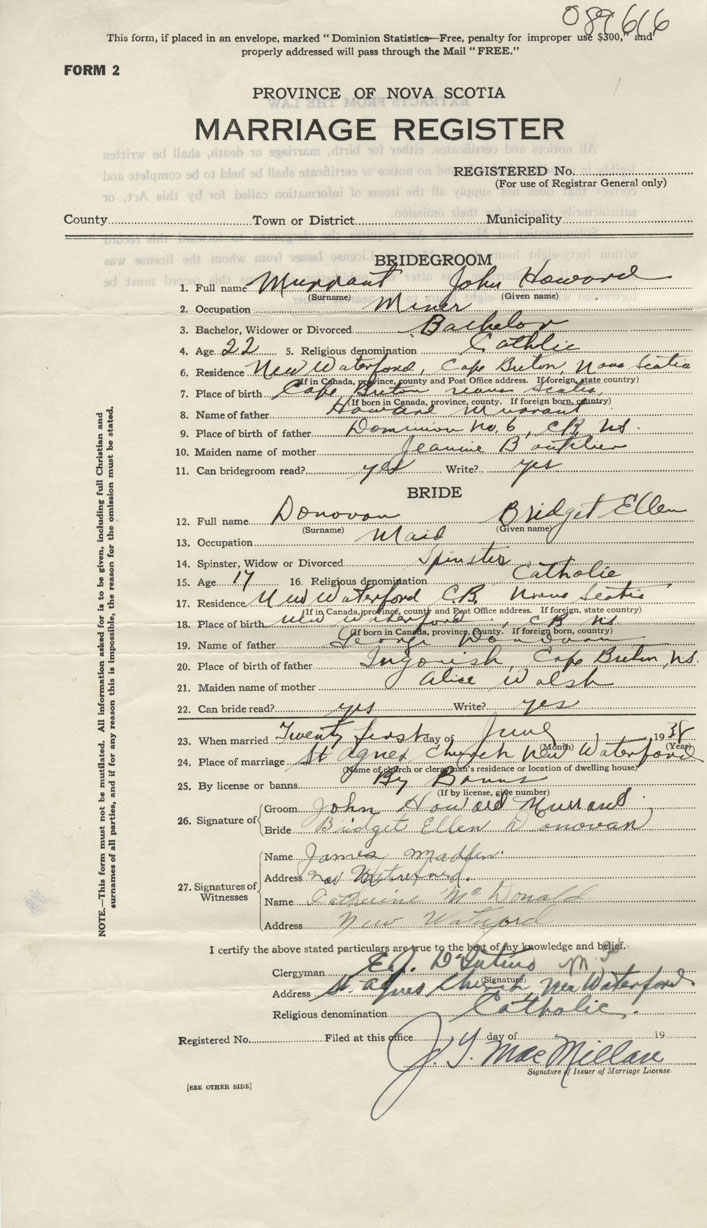 089616
This form, if placed in an envelope, marked "Dominion Statistics—Free, penalty for improper use $300," and
properly addressed will pass through the Mail "FREE."
FORM 2
PROVINCE OF NOVA SCOTIA
MARRIAGE REGISTER
REGISTERED No.
(For use of Registrar General only)
County Town or District Municipality
BRIDEGROOM
1. Full name Murrant John Howard
(Surname) (Given name)
2. Occupation Miner
3. Bachelor, Widower or Divorced Bachelor
4. Age 22 5. Religious denomination Catholic
6. Residence New Waterford, Cape Breton, Nova Scotia
(If in Canada, province, county and Post Office address. If foreign, state country)
7. Place of birth Cape Breton Nova Scotia
(If born in Canada, province, county. If foreign born, country)
8. Name of father Howard Murrant
9. Place of father Dominion No. 6, CB, NS.
10. Maiden name of mother Jeanine Boutilier
11. Can bridegroom read? yes Write? yes
BRIDE
12. Full name Donovan Bridget Ellen
(Surname) (Given name)
13. Occupation Maid
14. Spinster, Widow or Divorced Spinster
15. Age 17 16. Religious denomination Catholic
17. Residence New Waterford C.B. Nova Scotia
(If in Canada, province, county and Post Office address. If foreign, state country)
18. Place of birth New Waterford, CB NS.
(If born in Canada, province, county. If foreign born, country)
19. Name of father George Donovan
20. Place of birth of father Ingonish, Cape Breton, NS.
21. Maiden name of mother Alice Walsh
22. Can bride read? yes Write? yes
23. When married Twenty first day of June 1938
(Month) (Year)
24. Place of marriage St Agnes Church New Waterford
(Name of church or clergyman's residence or location of dwelling house)
25. By license or banns By Banns
(If by license, give number)
26. Signature of Groom John Howard Murrant
Bride Bridget Ellen Donovan
27. Signatures of Witnesses
Name James Madden
Address New Waterford.
Name Catherine McDonald
Address New Waterford
I certify the above stated particulars are true to the best of my knowledge and belief.
Clergyman E.J.
(Signature)
Address St. Agnes Church New Waterford
Religious denomination Catholic.
Registered No. Filed at this office day of 19
J. Y. MacMillan
Signature of Issuer of Marriage License.
[SEE OTHER SIDE]
NOTE.—This form must not be mutilated. All information asked for is to be given, including full Christian and
surnames of all parties, and if for any reason this is impossible, the reason for the omission must be stated.